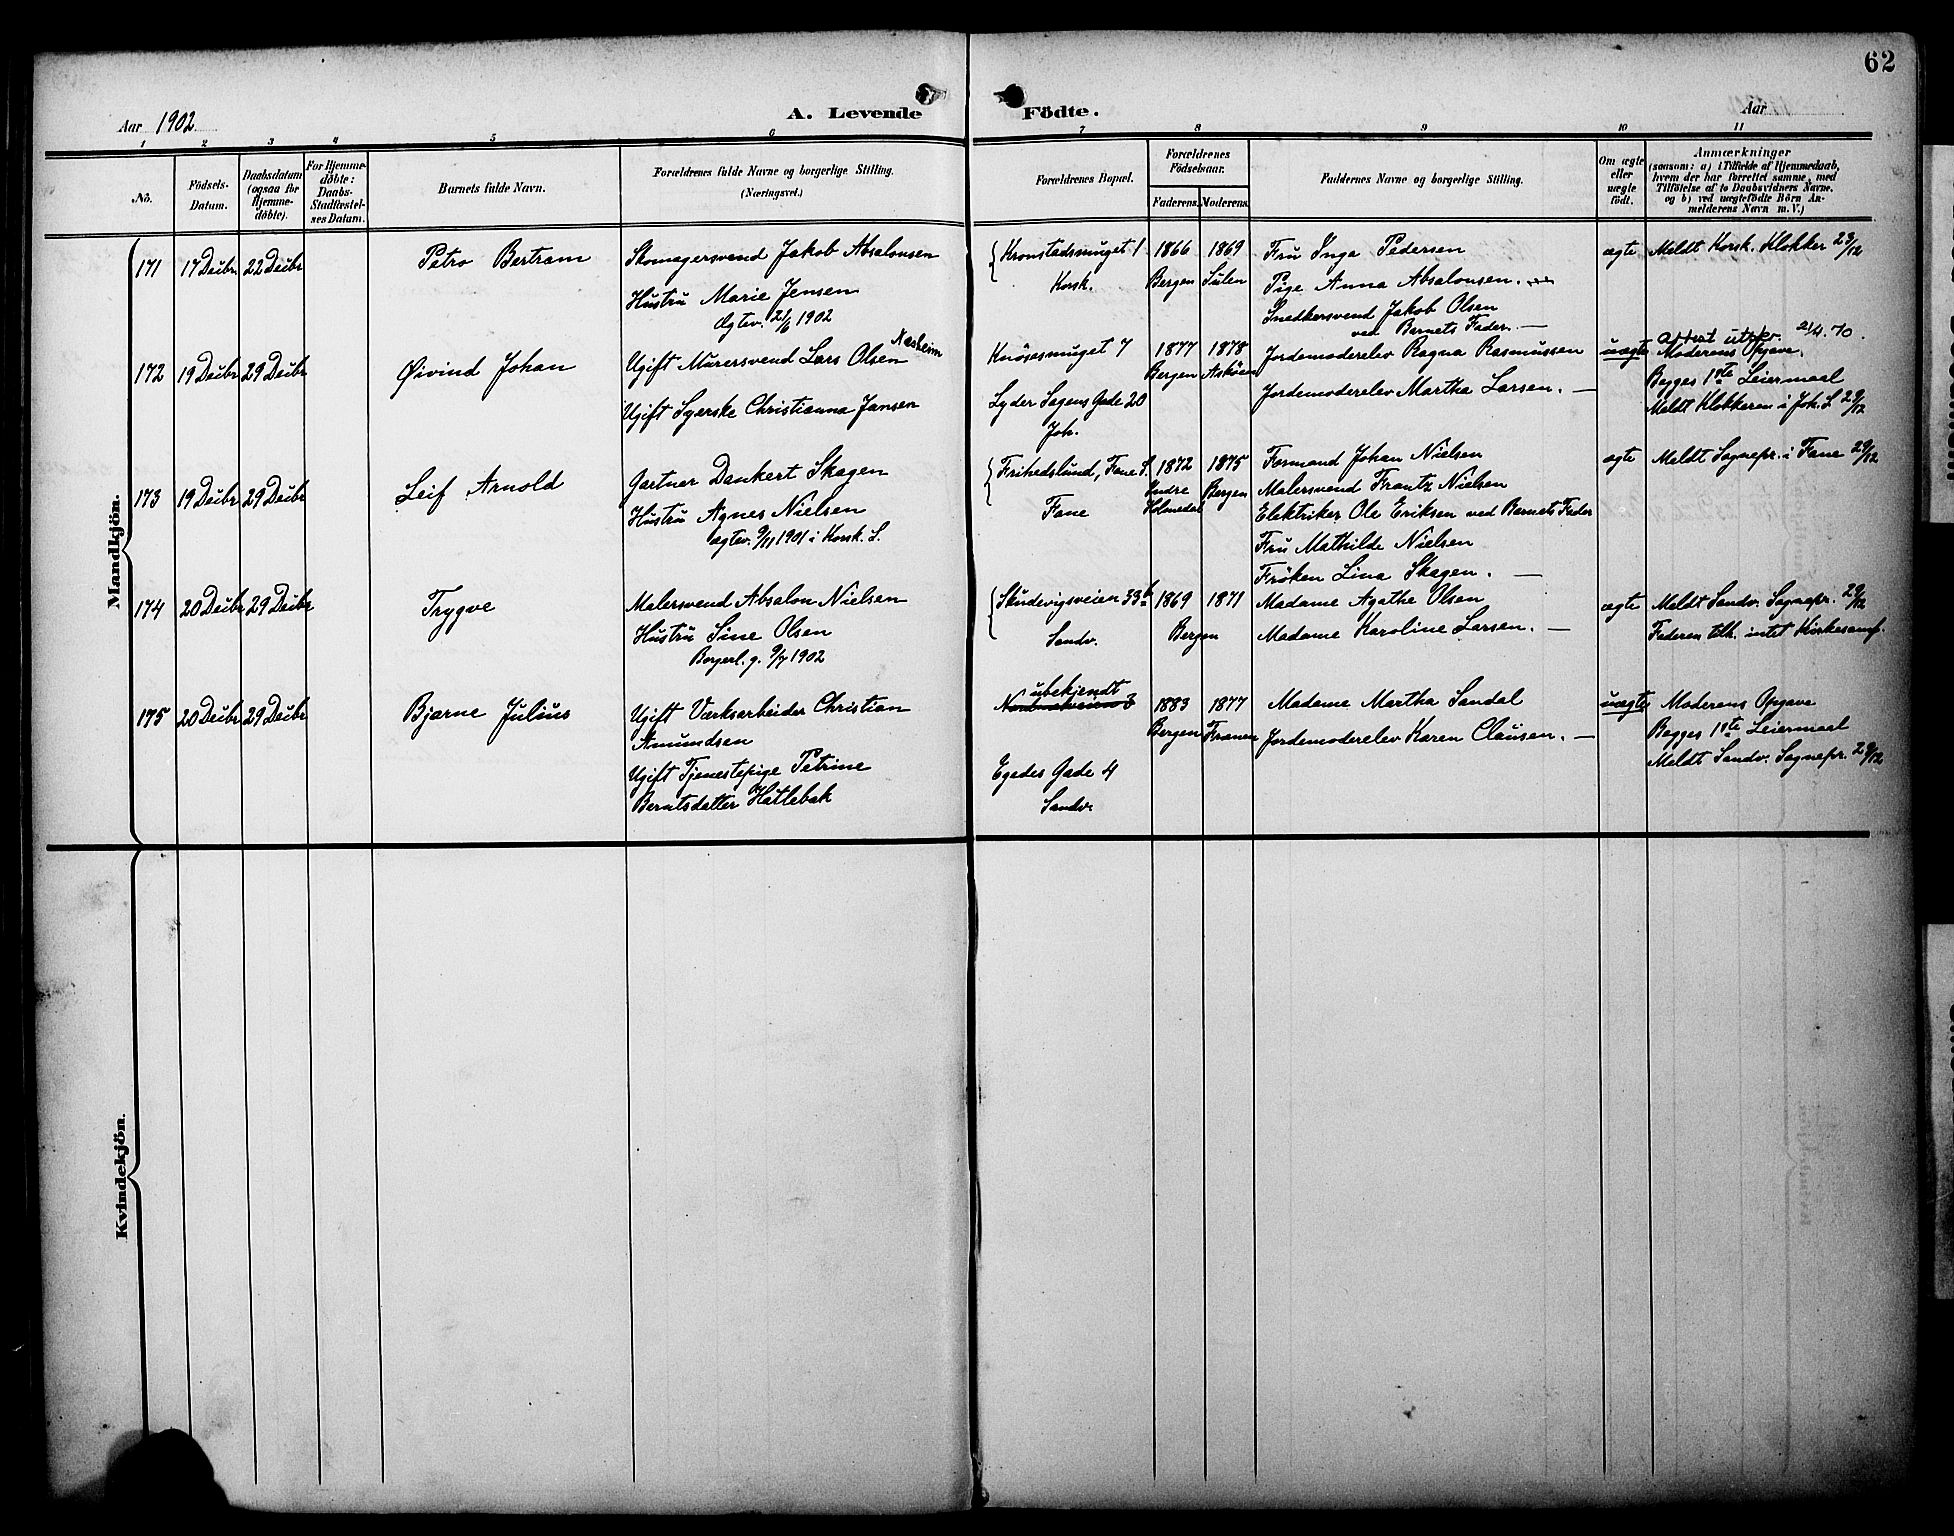 62
Aar 1902
A. Levende Födte.
Aar
1 2 3 4 5 6 7 8 9 10 11
No.
Födsels-Datum.
Daabsdatum (ogsaa for Hjemme-döbte).
For Hjemme-döbte: Daabs-Stadfæstel-ses Datum.
Barnets fulde Navn.
Forældrenes fulde Navne og borgerlige Stilling.
(Næringsvei.)
Forældrenes Bopæl.
Forældrenes Födselsaar.
Faderens. Moderens.
Faddernes Navne og borgerlige Stilling.
Om ægte eller uægte født.
Anmærkninger
(saasom: a) i Tilfælde af Hjemmedaab,
hvem der har forrettet samme, med
Tilföielse af to Daabsvidners Navne.
og b) ved uægtefödte Börn An-
melderens Navn m. V.)
Mandkjön.
171 17 Decbr 22 Decbr Petro Bertram
Skomagersvend Jakob Absalonsen
Hustru Marie Jensen
Ægtev. 21/6 1902
Kronstadsmuget 1
Korsk.
1866 1869
Bergen Sulen
Fru Inga Pedersen
Pige Anna Absalonsen.
Snedkersvend Jakob Olsen
ved Barnets Fader. —
ægte Meldt Korsk. Klokker 23/12
172 19 Decbr 29 Decbr Øivind Johan
Ugift Murersvend Lars Olsen Næsheim
Ugift Syerske Christianna Jansen
Knösesmuget 7
Lyder Sagens Gade 20
Joh.
1877 1878
Bergen Askøen
Jordemoderelev Ragna Rasmussen
Jordemoderelev Martha Larsen. —
uægte attest utskr. 21/4.70.
Moderens Opgave.
Begges 1ste Leiermaal
Meldt Klokkeren i Joh. S 29/12
173 19 Decbr 29 Decbr Leif Arnold
Gartner Dankert Skagen
Hustru Agnes Nielsen
Ægtev. 9/11 1901 i Korsk. S.
Frihedslund, Fane S.
Fane
1872 1875
Indre Holmedal Bergen
Formand Johan Nielsen
Malersvend Frantz Nielsen
Elektriker Ole Eriksen ved Barnets Fader
Fru Mathilde Nielsen
Fröken Lina Skagen. —
ægte Meldt Sognepr. i Fane 29/12
174 20 Decbr 29 Decbr Trygve
Malersvend Absalon Nielsen
Hustru Sine Olsen
Borgerl. g. 9/7 1902
Skudevigsveien 33b
Sandv.
1869 1871
Bergen
Madame Agathe Olsen
Madame Karoline Larsen. —
ægte Meldt Sandv. Sognepr. 29/12
Faderen tilh. intet Kirkesamf.
175 20 Decbr 29 Decbr Bjarne Julius
Ugift Værksarbeider Christian
Amundsen
Ugift Tjenestepige Petrine
Berntsdatter Hatlebak
ubekjendt
Egedes Gade 4
Sandv.
1883 1877
Bergen Frænen
Madame Martha Sandal
Jordemoderelev Karen Clausen. —
uægte Moderens Opgave
Begges 1ste Leiermaal
Meldt Sandv. Sognepr. 29/12
Kvindekjön.